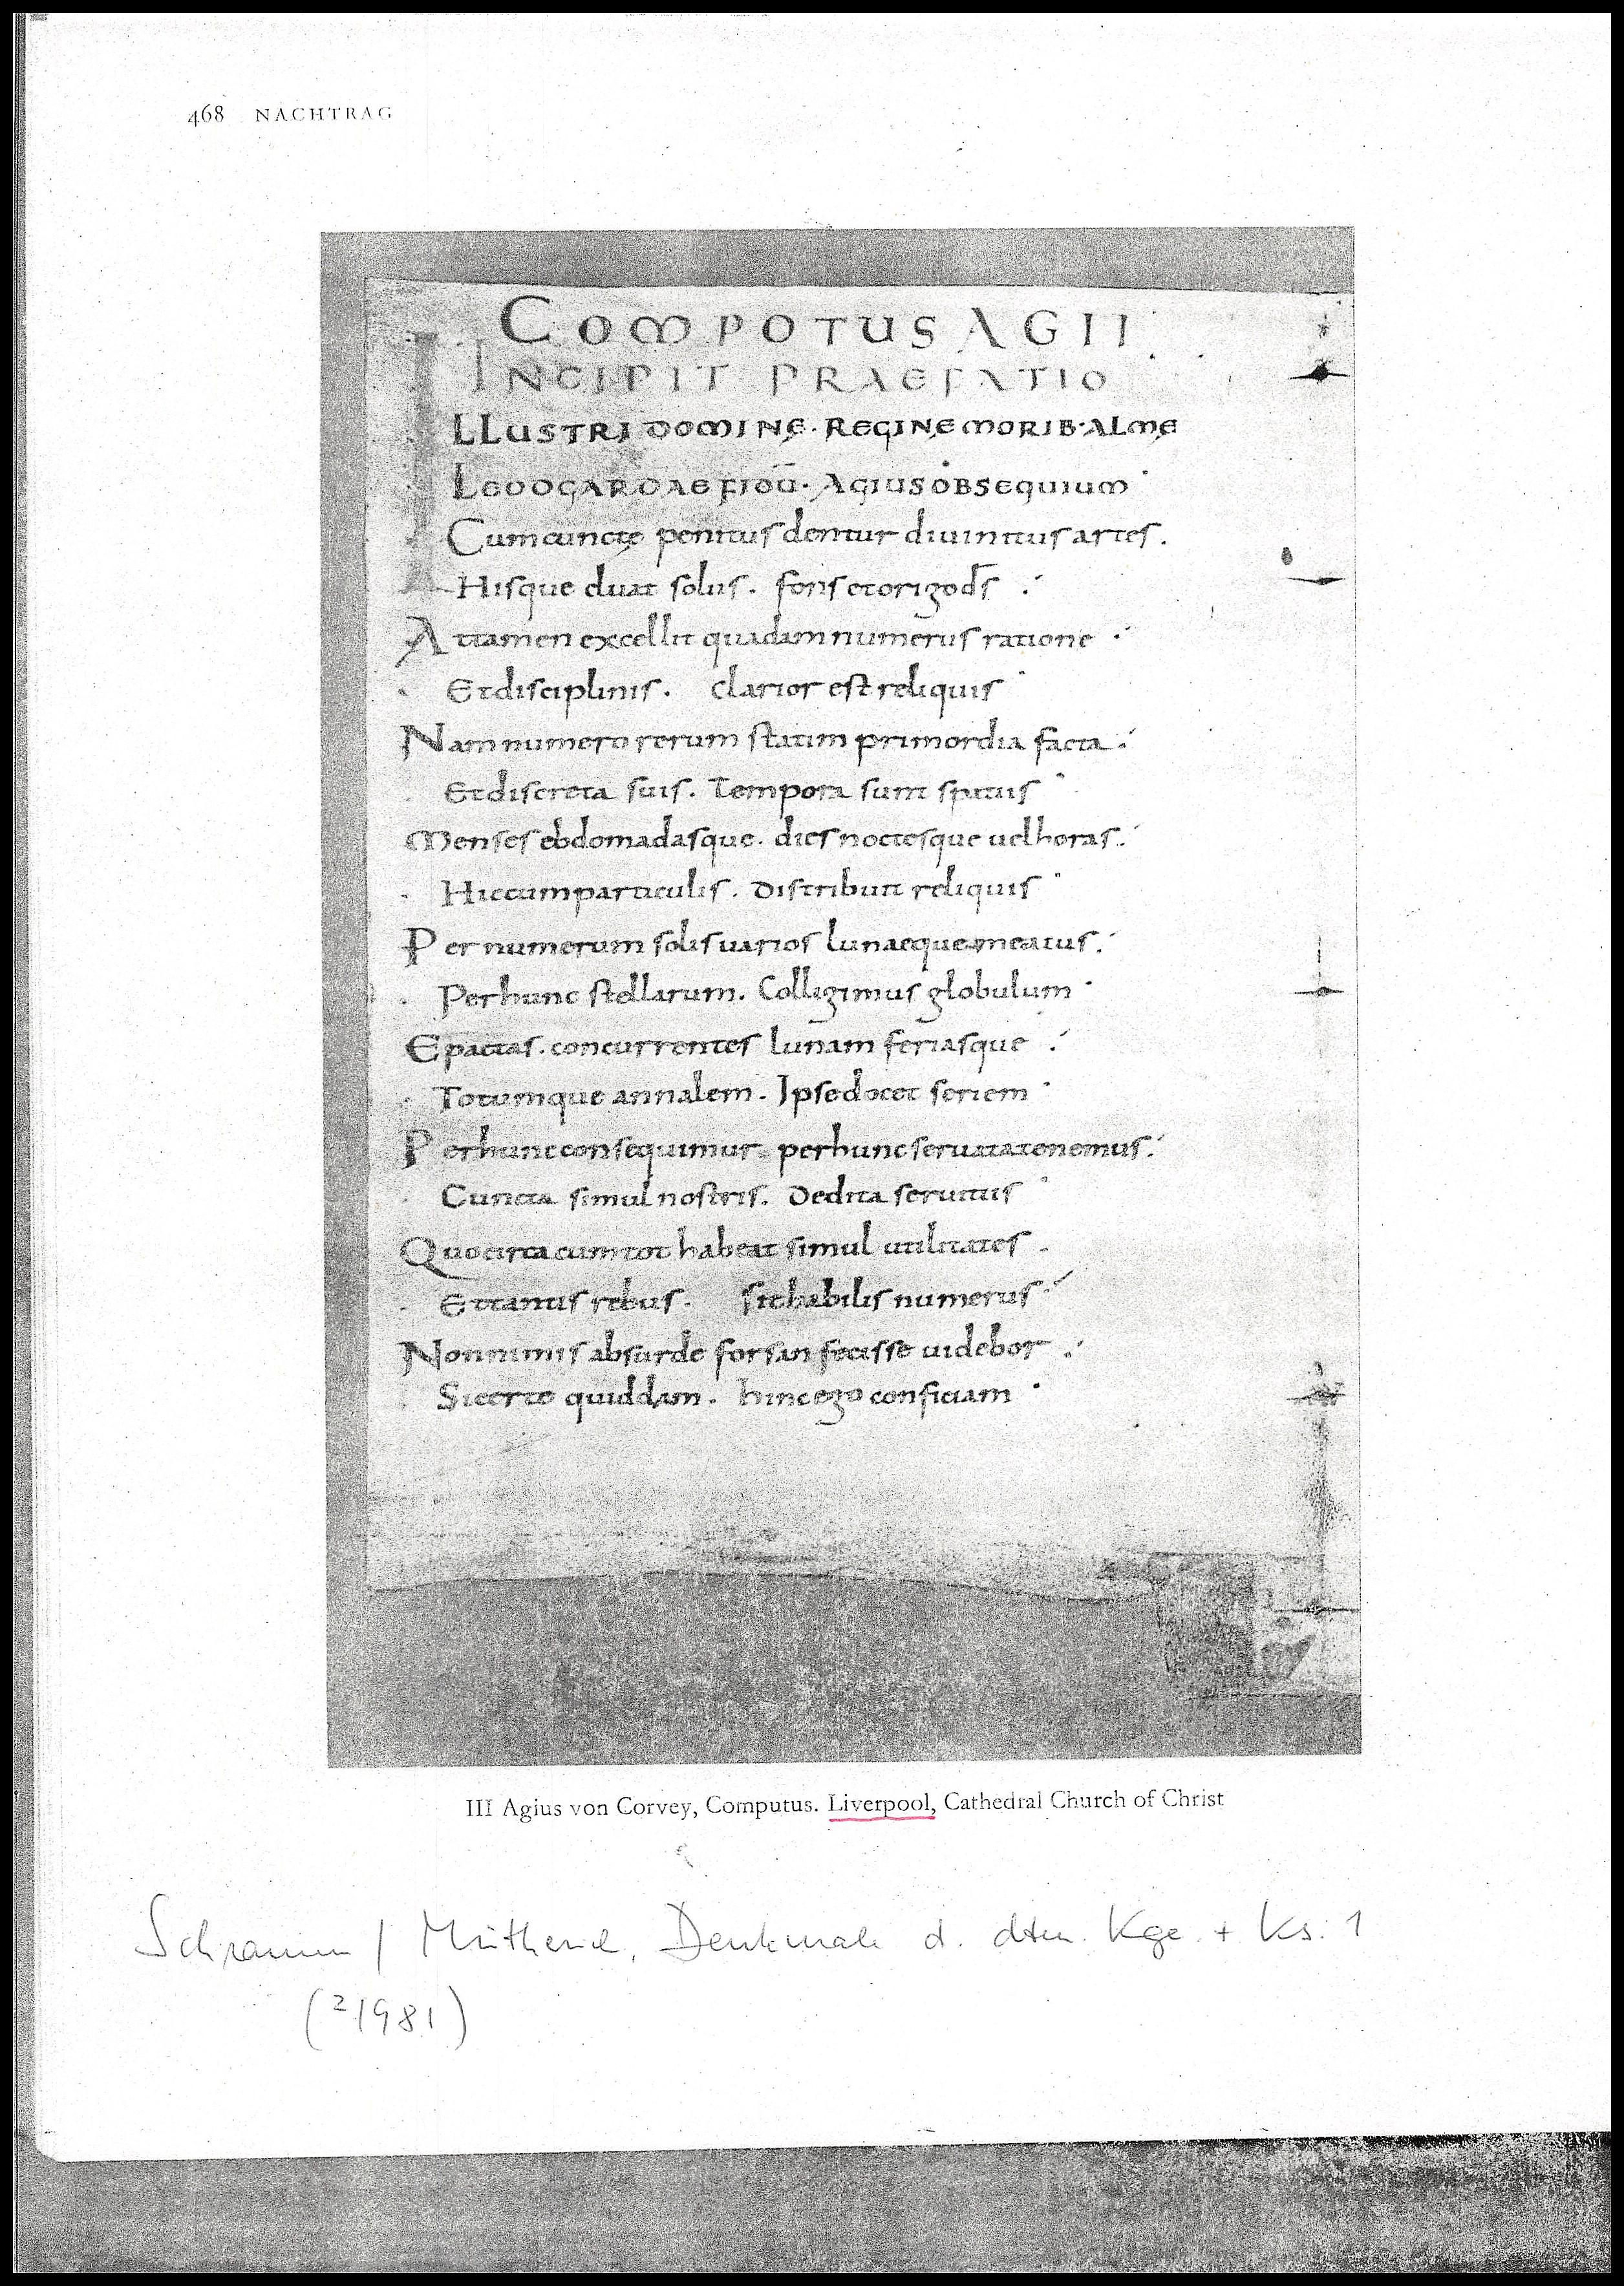 468 NACHTRAG
COMPOTUS AGII
INCIPIT PRAEFATIO
ILLUSTRI DOMINĘ · REGINĘ MORIB· ALMĘ
LEODGARDAE FIDŪ · AGIUS OBSEQUIUM
Cum cunctę penitus dentur diuinitus artes.
Hisque cluat solus. fons et origo d̄s
Attamen excellit quadam numerus ratione
Et disciplinis. clarior est reliquis
Nam numero rerum statim primordia facta
Et discreta suis. Tempora sunt spatiis
Menses ebdomadasque. dies noctesque uel horas.
Hic cum particulis. Distribuit reliquis
Per numerum solis uarios lunaeque meatus.
Per hunc stellarum. Colligimus globulum
Epactas. concurrentes lunam feriasque
Totumque annalem. Ipse docet seriem
Per hunc consequimur. per hunc seruata tenemus.
Cuncta simul nostris. Dedita seruitiis
Quocirca cum tot habeat simul utilitates
Et tantis rebus. sit habilis numerus
Non nimis absurde forsan fecisse uidebor
Si certe quiddam. hinc ego conficiam
III Agius von Corvey, Computus. Liverpool, Cathedral Church of Christ
Schramm / Mütherich, Denkmale d. dten. Kge. + Ks. 1
(²1981)